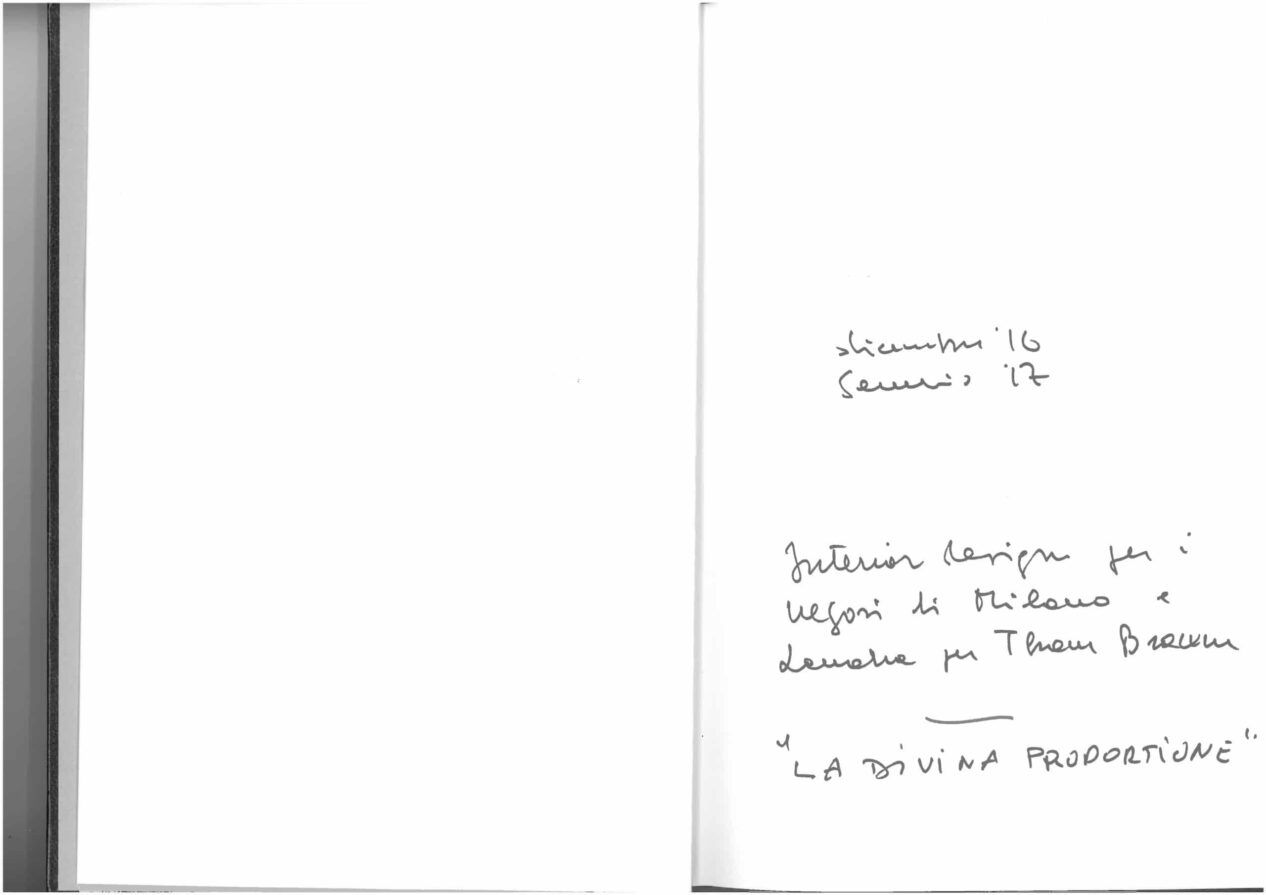 dicembre '16
Gennaio '17
Interior design per i
negozi di Milano e
Londra per Thom Browne
"LA DIVINA PROPORTIONE"